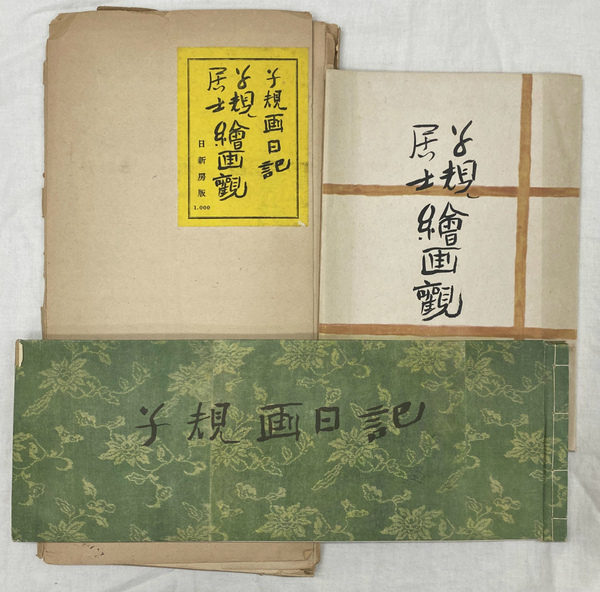 子規画日記
子規
居士
繪画觀
日新房版
1.000
子規
居士
繪画觀
子規画日記